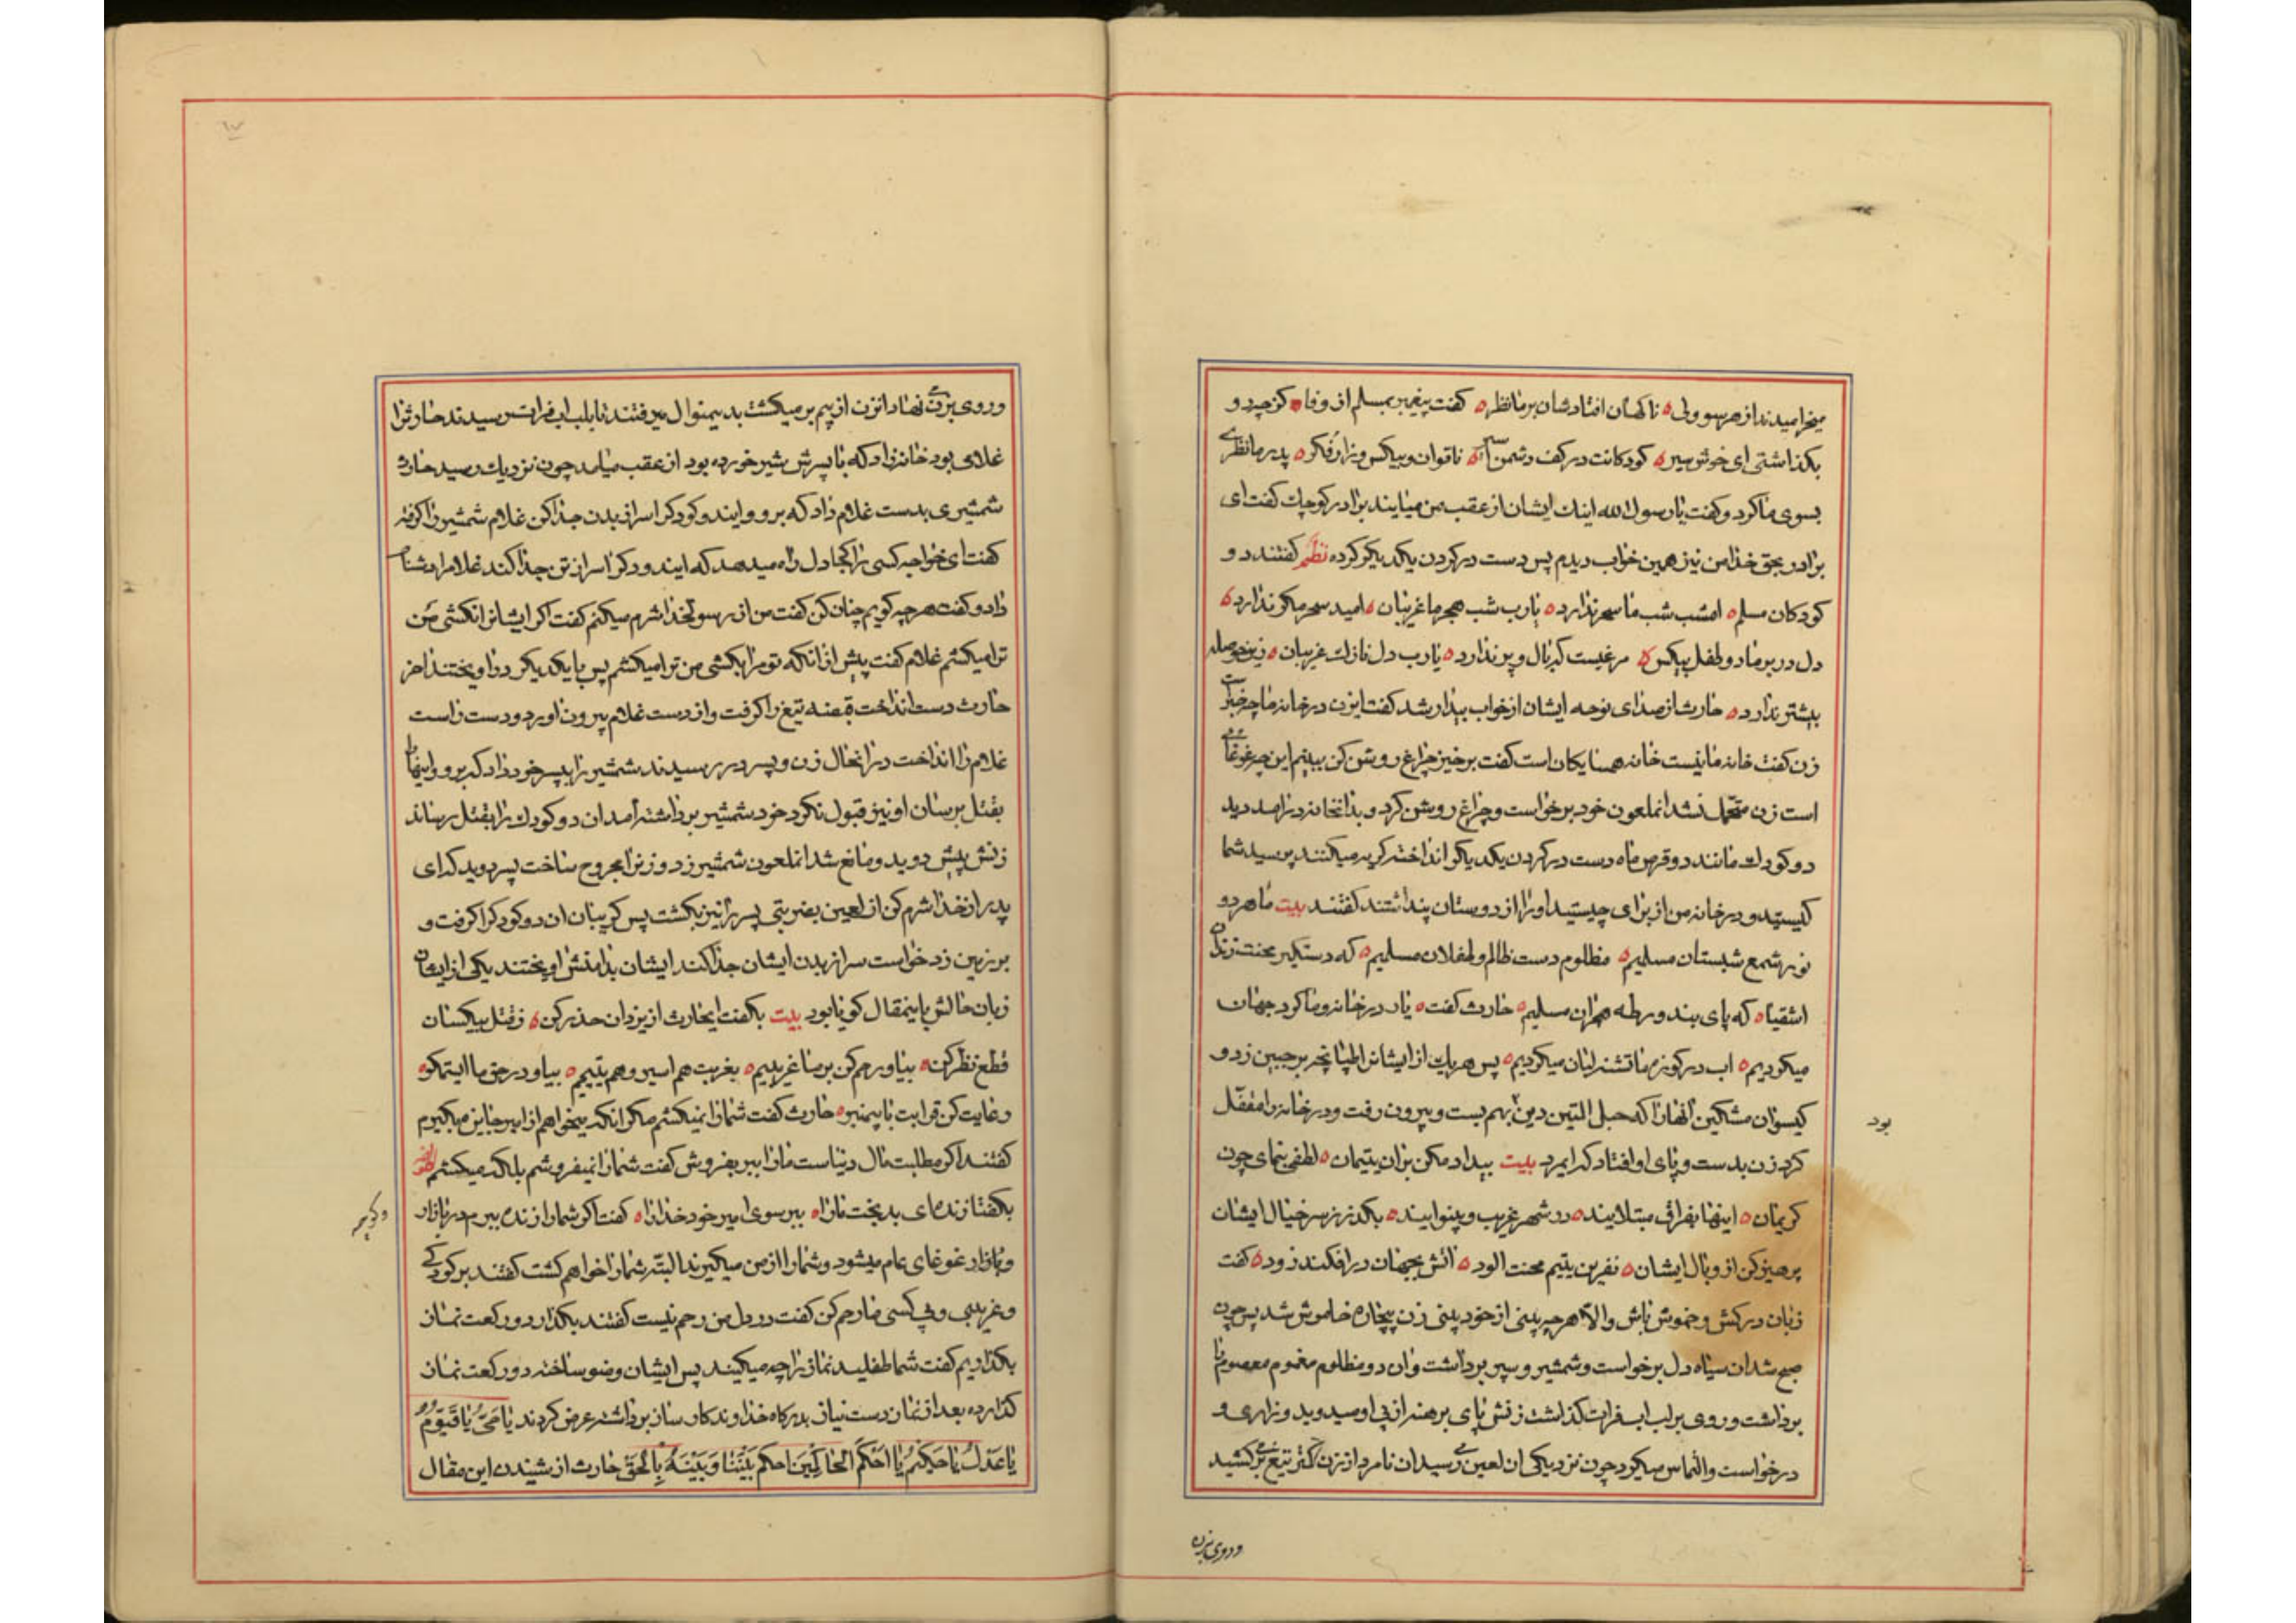 میخرامیدند از هر سو ولی ناکهان افتادشان بر ما نظر کفت پیغمبر بمسلم از وفا کز چه دو
بکذاشتی ای خوش سیر کودکانت در کف دشمن ناتوان و بیکس و زار و فکر پدر ما نظری
بسوی ما کرد و کفت یا رسول الله اینک ایشان از عقب من میایند برادر کوچک کفت ای
برادر بحق خدا من نیز همین خواب دیدم پس دست در کردن یکدیکر کرده نظم کفتند دو
کودکان مسلم امشب شب ما سحر ندارد یارب شب هجر ما غریبان امید سحر مکر ندارد
دل در بر ما دو طفل بیکس مرغیست که بال و پر ندارد یارب دل نازک غریبان زین حوصله
بیشتر ندارد حارث از صدای نوحه ایشان از خواب بیدار شد کفت ایزن در خانه ما چه خبر است
زن کفت خانه ما نیست خانه همسایکان است کفت برخیز چراغ روشن کن ببینم این چه غوغائی
است زن متحمل نشد انملعون خود برخواست و چراغ روشن کرد و بدانخانه درامد دید
دو کودک مانند دو قرص ماه دست در کردن یکدیکر انداخته کریه میکنند پرسید شما
کیستید و در خانه من از برای چیستید او را از دوستان پنداشتند کفتند بیت ما هر دو
نور شمع شبستان مسلمیم مظلوم دست ظالم و طفلان مسلمیم که دستکیر محنت زندان
اشقیا که پای بند ورطه هجران مسلمیم حارث کفت یار در خانه و ما کرد جهان
میکردیم اب در کوزه ما تشنه لبان میکردیم پس هر یک از ایشانرا طپانچه بر جبین زد و
کیسوان مشکین انهارا که حبل المتین دین بود بهم بست و بیرون رفت و در خانه را مقفل
کرد زن بدست و پای او افتاد که ایمرد بیت بیداد مکن بران یتیمان لطفی بنمای چون
کریمان اینها بفراق مبتلایند در شهر غریب و بینوایند بکذر ز سر خیال ایشان
پرهیز کن از وبال ایشان نفرین یتیم محنت الود اتش بجهان درافکند زود کفت
زبان درکش و خموش باش والا هر چه بینی از خود بینی زن بیچاره خاموش شد پس چون
صبح شد ان سیاه دل برخواست و شمشیر و سپر برداشت و ان دو مظلوم مغموم معصوم را
برداشت و روی بر لب اب فرات کذاشت زنش پای برهنه از پی او میدوید و زاری و
درخواست و التماس میکرد چون نزدیکی ان لعین رسید ان نامرد از زن کمتر تیغ برکشید
و روی بزن
و روی بزن نهاد انزن از بیم بر میکشت بدینمنوال میرفتند تا بلب اب فرات رسیدند حارث را
غلامی بود خانه زاد که با پسرش شیر خورده بود از عقب میامد چون نزدیک رسید حارث
شمشیری بدست غلام داد که برو و ایندو کودکرا سر از بدن جدا کن غلام شمشیر را کرفته
کفت ای خواجه کسی را کجا دل راه میدهد که ایندو کودکرا سر از تن جدا کند غلام را دشنام
داد و کفت هر چه کویم چنان کن کفت من از رسولخدا شرم میکنم کفت اکر ایشانرا نکشی من
ترا میکشم غلام کفت پیش از انکه تو مرا بکشی من ترا میکشم پس با یکدیکر دراویختند اخر
حارث دست انداخت قبضه تیغ را کرفت و از دست غلام بیرون اورد و دست راست
غلام را انداخت در انحال زن و پسر در رسیدند شمشیر را بپسر خود داد که برو و اینها را
بقتل برسان او نیز قبول نکرد خود شمشیر برداشته امد ان دو کودک را بقتل رساند
زنش پیش دوید و مانع شد انملعون شمشیر زد و زنرا مجروح ساخت پسر دوید که ای
پدر از خدا شرم کن از لعین بضربتی پسر را نیز بکشت پس کریبان ان دو کودکرا کرفت و
بر زمین زد خواست سر از بدن ایشان جدا کند ایشان بدامنش اویختند یکی از ایشان
زبان حالش باینمقال کویا بود بیت بکفت ایحارث از یزدان حذر کن ز قتل بیکسان
قطع نظر کن بیا و رحم کن بر ما غریبیم بغربت هم اسیر و هم یتیمیم بیا و در حق ما این ستم کو
رعایت کن قرابت با پیمبر حارث کفت شما را نمیکشم مکر انکه میخواهم از امیر جایزه بکیرم
کفتند اکر مطلبت مال دنیاست ما را ببر بفروش کفت شما را نمیفروشم بلکه میکشم
بکفتا زنده ای بدبخت ما را ببر سوی امیر خود خدا را کفت اکر شما را زنده ببرم در بازار
و کوچه
و بازار غوغای عام میشود و شما را از من میکیرند البته شما را خواهم کشت کفتند بر کودکی
و غریبی و بی کسی ما رحم کن کفت در دل من رحم نیست کفتند بکذار دو رکعت نماز
بکذاریم کفت شما طفلید نماز را چه میکنید پس ایشان وضو ساخته دو رکعت نماز
کذارده بعد از نماز دست نیاز بدرکاه خداوند کارساز برداشته عرض کردند یا حی یا قیوم
یا عدل یا حکیم یا احکم الحاکمین احکم بیننا و بینه بالحق حارث از شنیدن این مقال